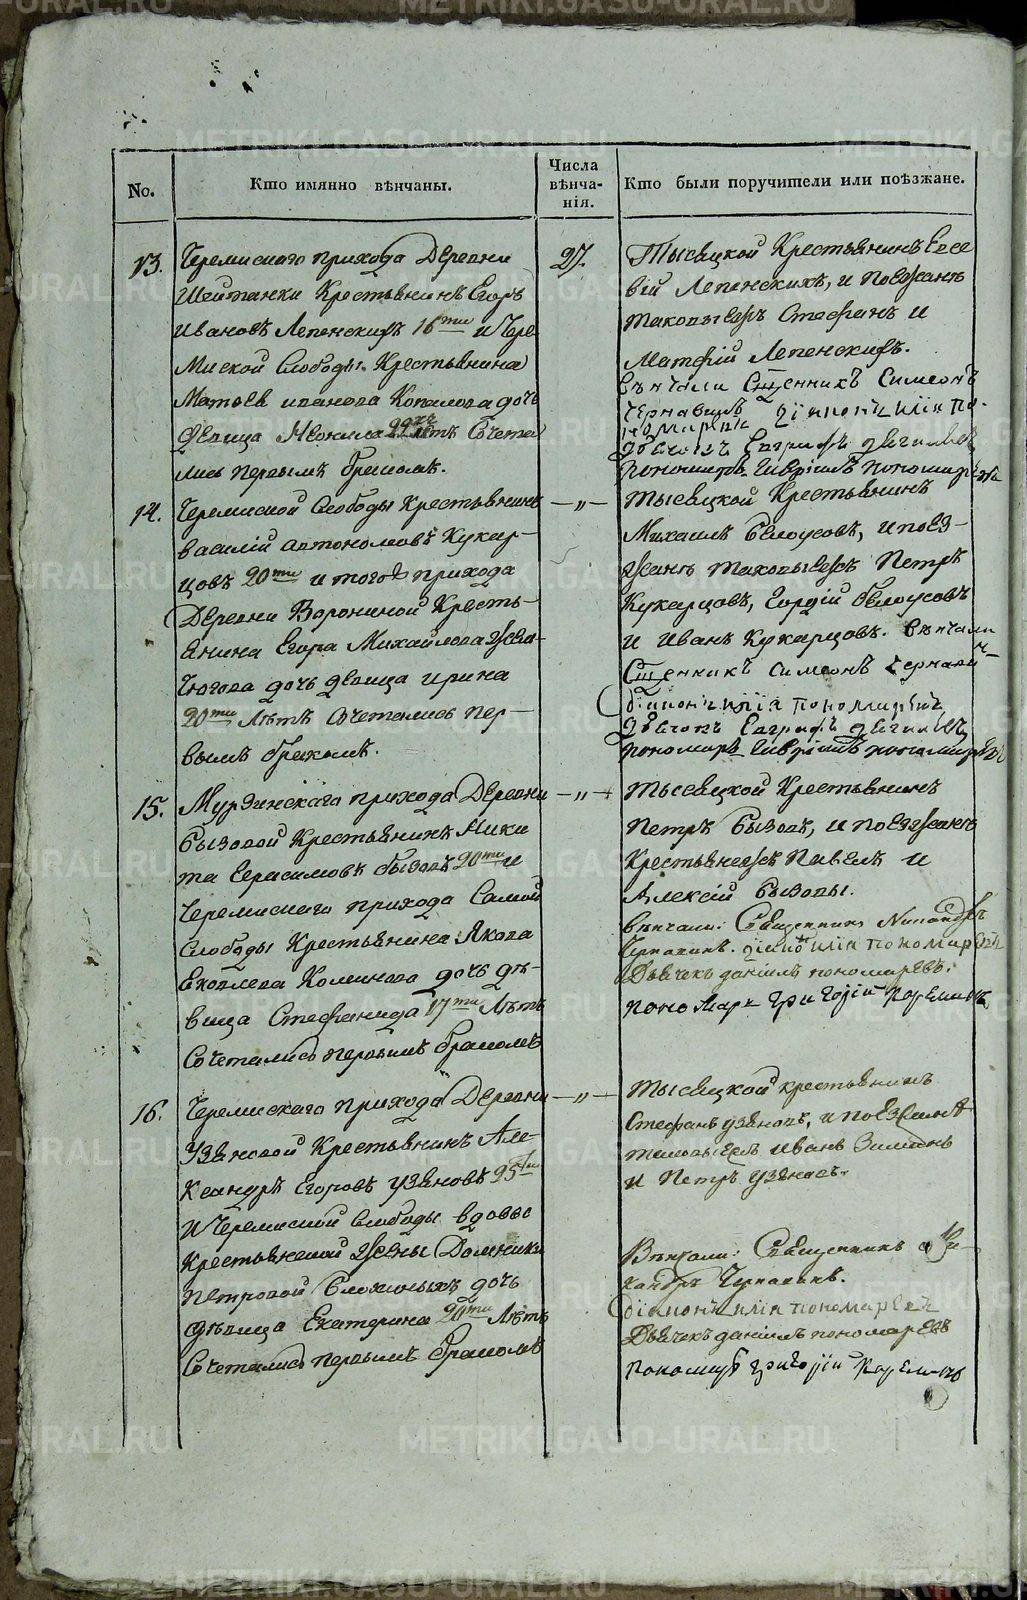 No.
Кто имянно вѣнчаны.
Числа
вѣнча-
нія.
Кто были поручители или поѣзжане.
13.
Черемискаго прихода Деревни
Шайтанки Крестьянинъ Егоръ
Ивановъ Лепенскихъ 16ти и Чере
миской Слободы Крестьянина
Матвея иванова Копалова дочь
Девица Неонила 22хъ лѣтъ Сочета
лись первымъ бракомъ.
27.
Тысяцкой Крестьянинъ Евсе
вій Лепенскихъ, и поезжанѣ
таковыежъ Стефанъ и
Матфій Лепенскихъ.
вѣнчали Сщенникъ Симеонъ
Чернавинъ діаконъ илія по-
номаревъ
дьячокъ Евграфъ
пономарь Гаврiилъ пономаревъ
14.
Черемиской Слободы Крестьянинъ
василій автономовъ Кукар-
цовъ 20ти и тогожъ прихода
Деревни Ворониной Кресть-
янина Егора Михайлова
дочь девица ирина
20ти лѣтъ Сочетались пер-
вымъ бракомъ.
— „ —
тысяцкой Крестьянинъ
Михаилъ Белоусовъ, и поез-
жанѣ таковыежъ Петръ
Кукарцовъ, Гордій белоусовъ
и Иванъ Кукарцовъ. вѣнчали
Сщенникъ симеонъ чернавин-
діаконъ илія пономаревъ
дьячокъ Евграфъ
пономарь Гаврiилъ пономаревъ
15.
Мурзинскаго прихода Деревни
Бызовой Крестьянинъ Ники
та Герасимовъ бызовъ 20ти и
Черемискаго прихода Самой
Слободы Крестьянина Якова
Яковлева Коминова дочь дѣ-
вица Стефанида 17ти лѣтъ
Сочетались первымъ бракомъ
— „ —
тысяцкой Крестьянинъ
Петръ Бызовъ, и поезжанѣ
Крестьянежъ Павелъ и
Алексій Бызовы.
вѣнчали: Священникъ Никандръ
Чернавинъ. діаконъ илія пономаревъ
Дьячекъ даніилъ пономаревъ.
пономарь григорій
16.
Черемискаго прихода Деревни
Узяновой Крестьянинъ Але-
ксандръ Егоровъ узяновъ 25ти
и Черемиской Слободы вдовы
Крестьянской жены Домники
Петровой Блохиныхъ дочь
дѣвица Екатерина 20ти лѣтъ
Сочетались первымъ бракомъ
— „ —
тысяцкой крестьянинъ
Стефанъ узяновъ, и поезжанѣ
таковыежъ иванъ Зиминъ
и Петръ узяновъ.
Вѣнчали: Священникъ Ни-
кандръ Чернавинъ.
діаконъ илія пономаревъ
Дьячекъ даніилъ пономаревъ
пономарь григорій